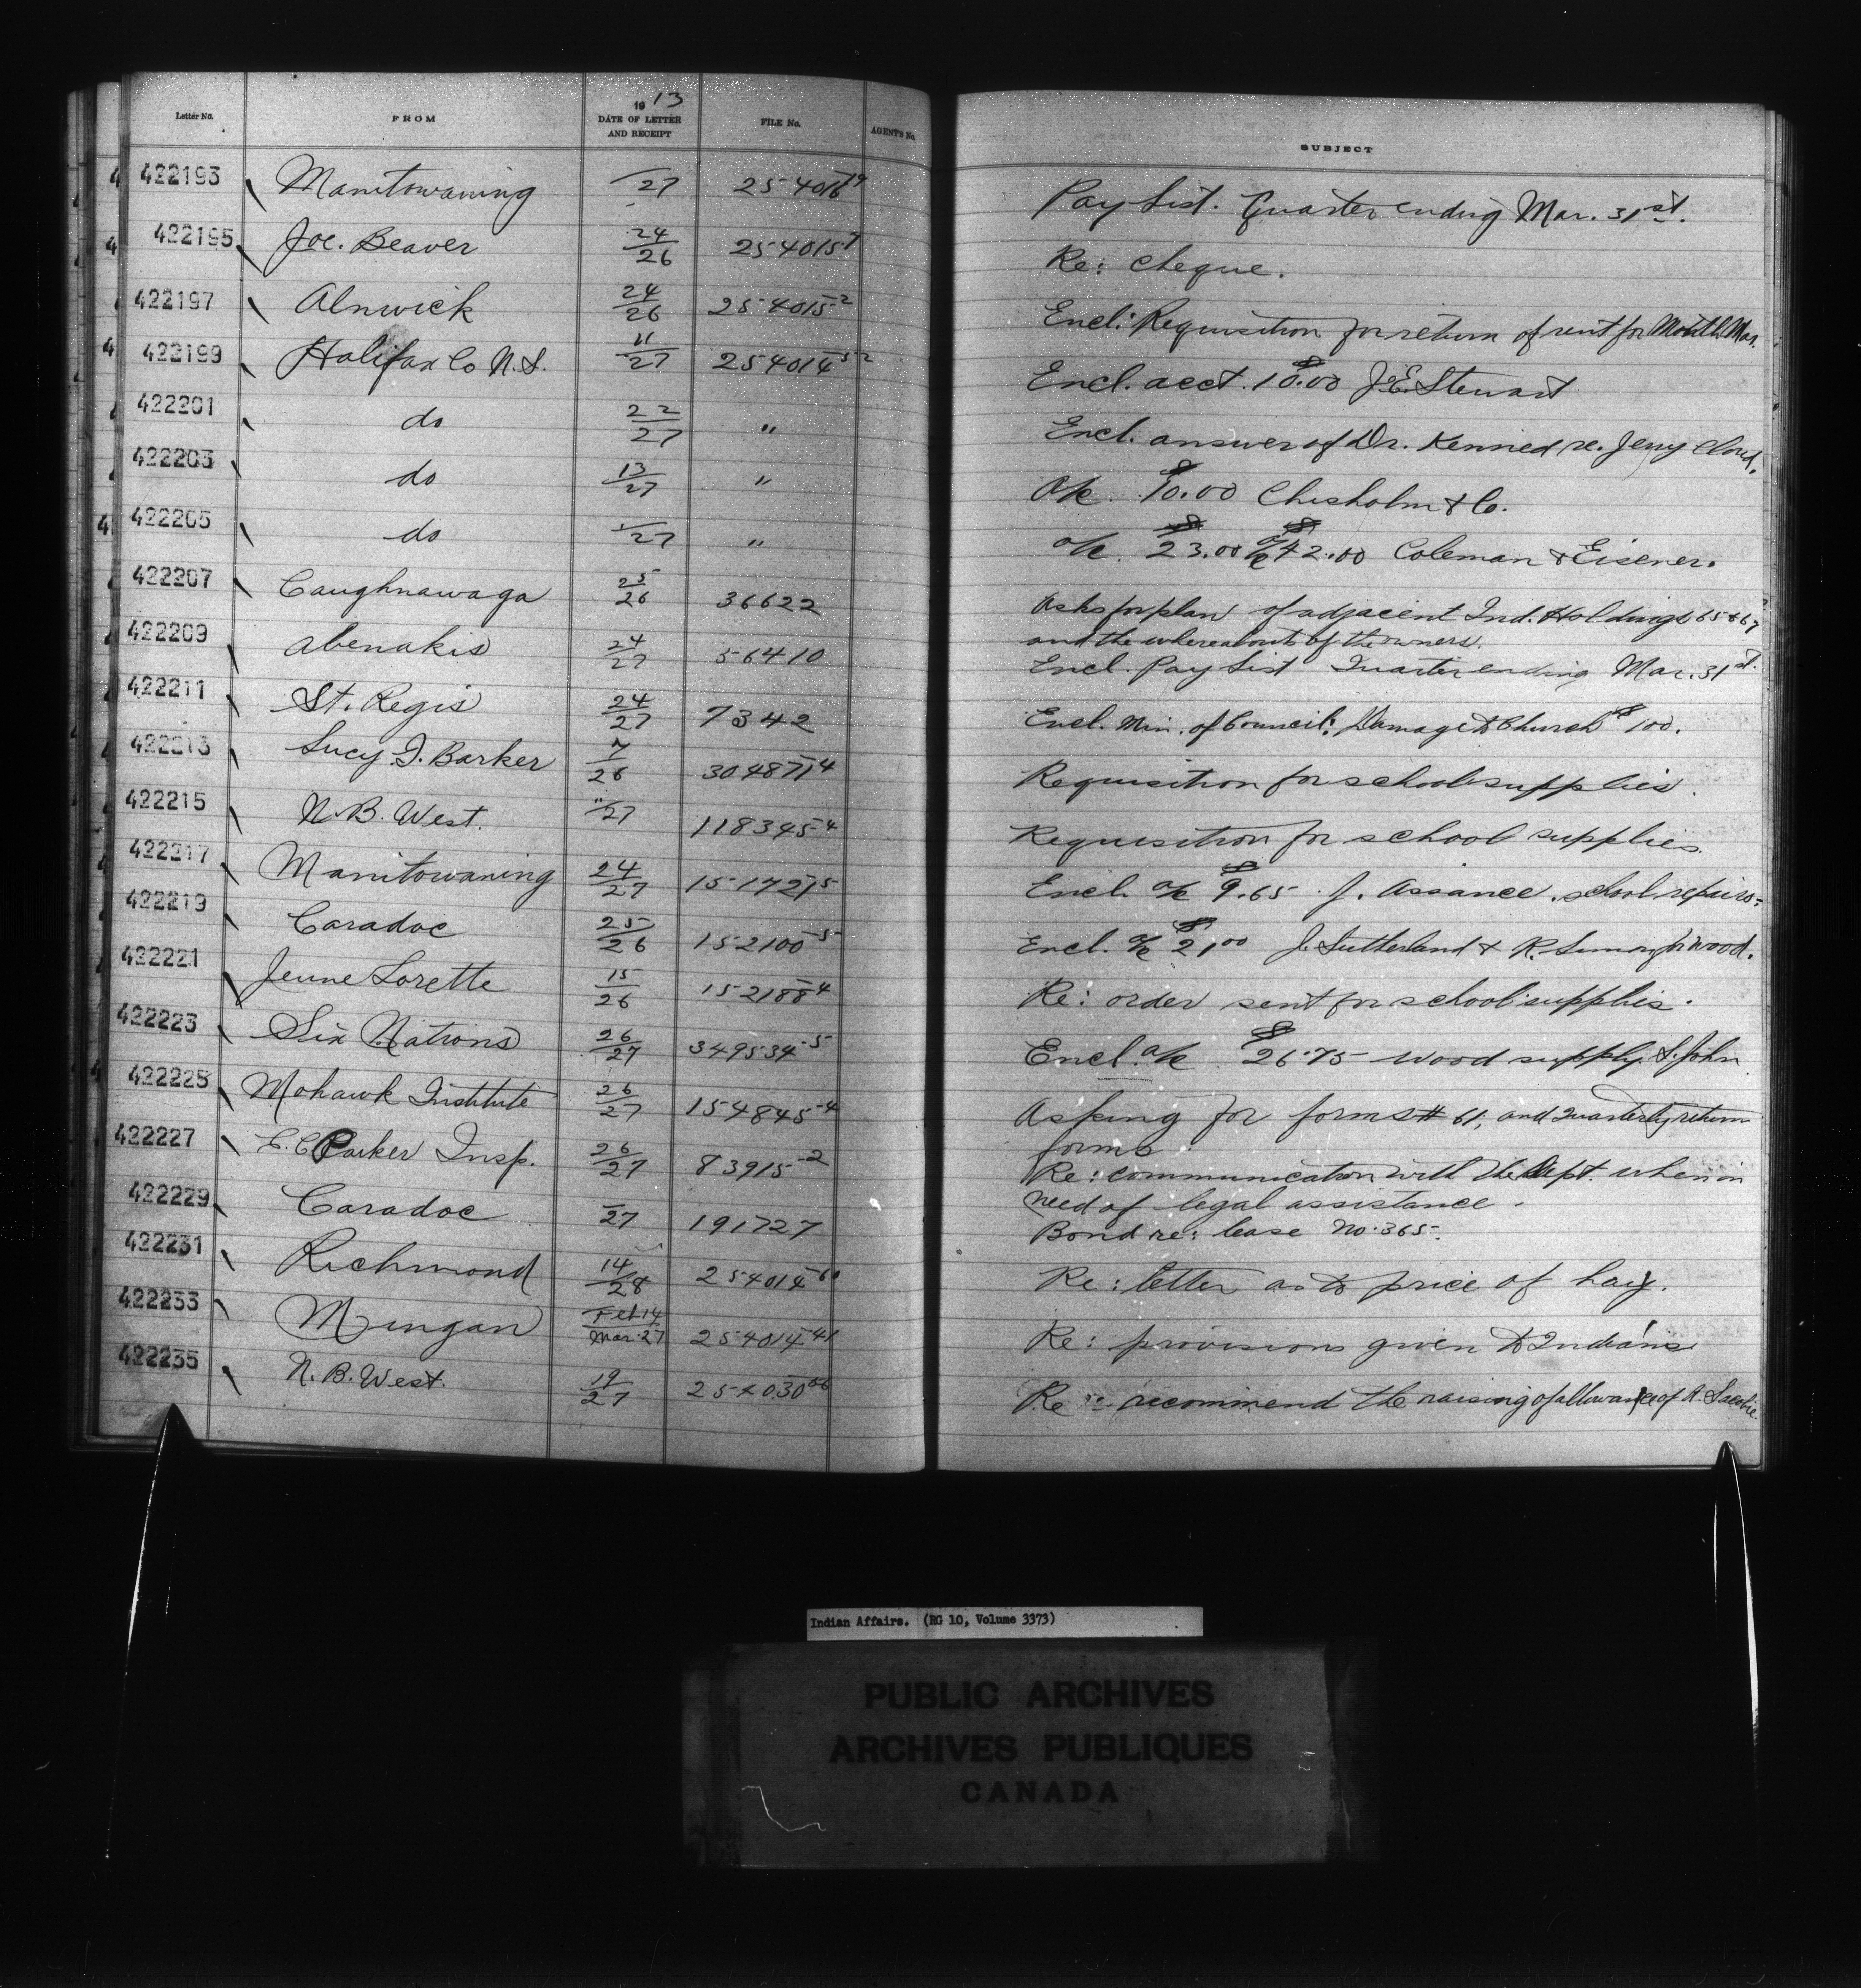 Letter No. FROM 1913 DATE OF LETTER AND RECEIPT FILE No. AGENT'S No. SUBJECT
422193 Manitowaning /27 254016-19 Pay List. Quarter ending Mar. 31st.
422195 Joe. Beaver 24/26 254015-7 Re: cheque.
422197 Alnwick 24/26 254015-2 Encl: Requisition for return of rent for Month Mar.
422199 Halifax Co N.S. 11/27 254014-52 Encl. acct. $10.00 J.E. Stewart
422201 do 22/27 " Encl. answer of Dr. Kenned re. Jerry Cloud.
422203 do 13/27 " a/c $10.00 Chisholm & Co.
422205 do /27 " a/c $23.00 a/c $42.00 Coleman & Eisener.
422207 Caughnawaga 25/26 36622 Asks for plan of adjacent Ind. Holdings 65 & 67
and the whereabouts of the owners.
422209 Abenakis 24/27 56410 Encl. Pay List Quarter ending Mar. 31st.
422211 St. Regis 24/27 7342 Encl. Min. of Council: Damage to Church $100.
422213 Lucy I. Barker 7/26 304871-4 Requisition for school supplies.
422215 N.B. West. "/27 118345-4 Requisition for school supplies.
422217 Manitowaning 24/27 151721-5 Encl. a/c $9.65 J. Assance. school repairs.
422219 Caradoc 25/26 152100-5 Encl. a/c $21.00 J. Sutherland & R. for wood.
422221 Jeune Lorette 15/26 152188-4 Re: order sent for school supplies.
422223 Six Nations 26/27 349534-5 Encl. a/c $26.75 wood supply. S. John
422225 Mohawk Institute 26/27 154845-4 Asking for forms # 61, and quarterly return
forms
422227 E. C Parker Insp. 26/27 83915-2 Re: communication with the Dept. when in
need of legal assistance.
422229 Caradoc /27 191727 Bond re: lease No. 365.
422231 Richmond 14/28 254014-60 Re: letter as to price of hay.
422233 Mingan Feb. 14/Mar. 27 254014-41 Re: provisions given to Indians
422235 N.B. West. 19/27 254030 Re recommend the raising of allowance of A.
Indian Affairs. (RG 10, Volume 3373)
PUBLIC ARCHIVES
ARCHIVES PUBLIQUES
CANADA